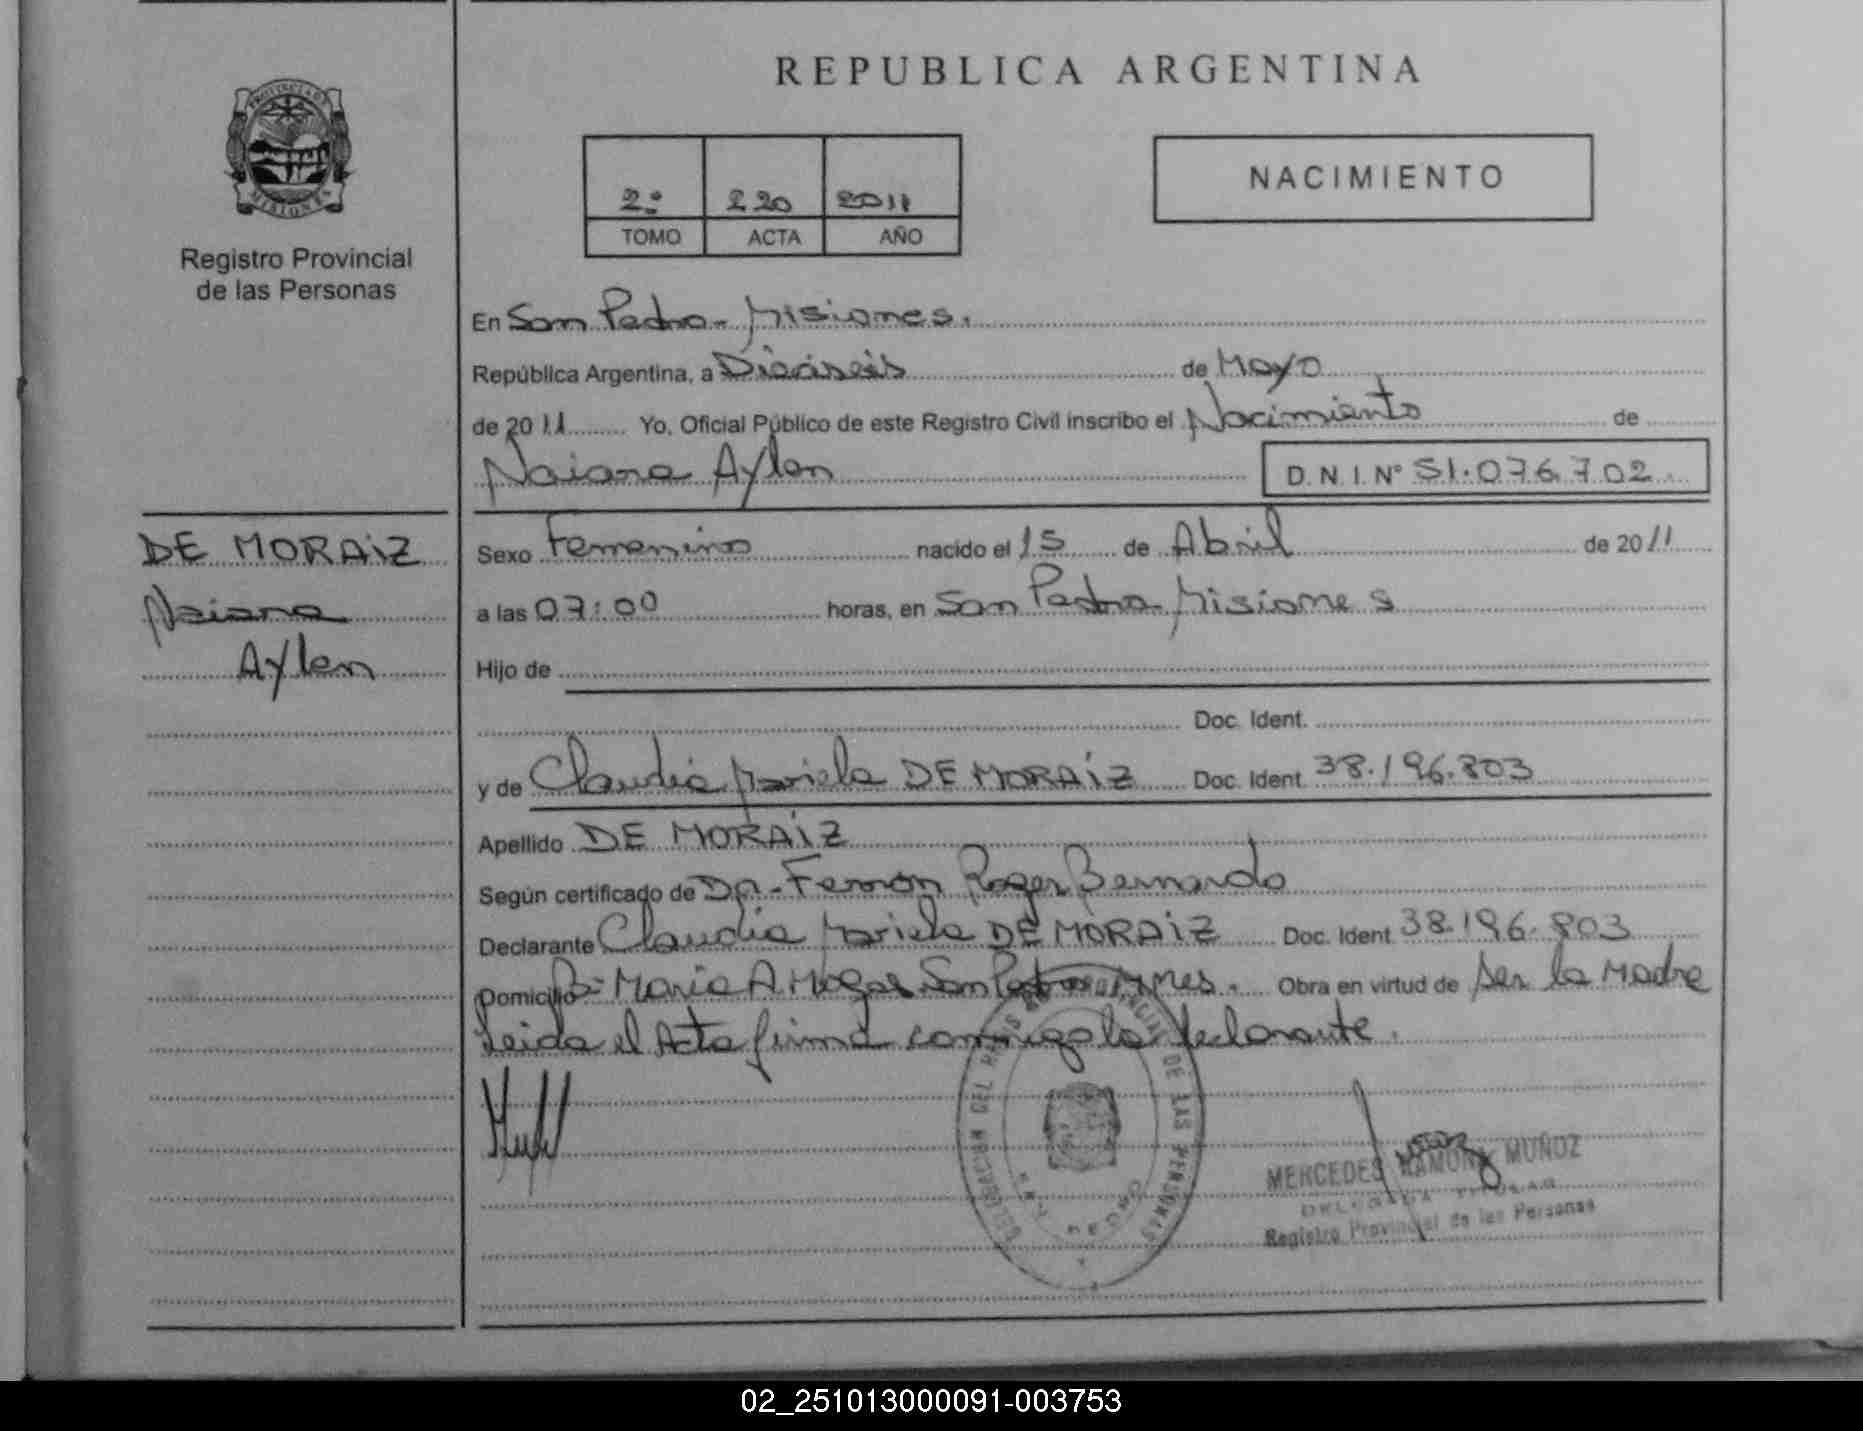 REPUBLICA ARGENTINA
PROVINCIA DE
MISIONES
Registro Provincial
de las Personas
NACIMIENTO
2º 220 2011
TOMO ACTA AÑO
En San Pedro - Misiones.
República Argentina, a Dieciseis de Mayo
de 2011 Yo, Oficial Público de este Registro Civil inscribo el Nacimiento de
Naiara Aylen D.N.I. Nº 51.076.702
DE MORAIZ
Naiara
Aylen
Sexo Femenino nacido el 15 de Abril de 2011
a las 07:00 horas, en San Pedro - Misiones
Hijo de
Doc. Ident.
y de Claudia Mariela DE MORAIZ Doc. Ident. 38.196.803
Apellido DE MORAIZ
Según certificado de Dr. Ferron Roger Bernardo
Declarante Claudia Mariela DE MORAIZ Doc. Ident 38.196.803
Domicilio Bº Maria A. San Pedro Mnes. Obra en virtud de ser la Madre
Leida el Acta firma conmigo la declarante.
DELEGACION DEL REGISTRO PROVINCIAL DE LAS PERSONAS
MERCEDES RAMONA MUÑOZ
DELEGADA TITULAR
Registro Provincial de las Personas
02_251013000091-003753